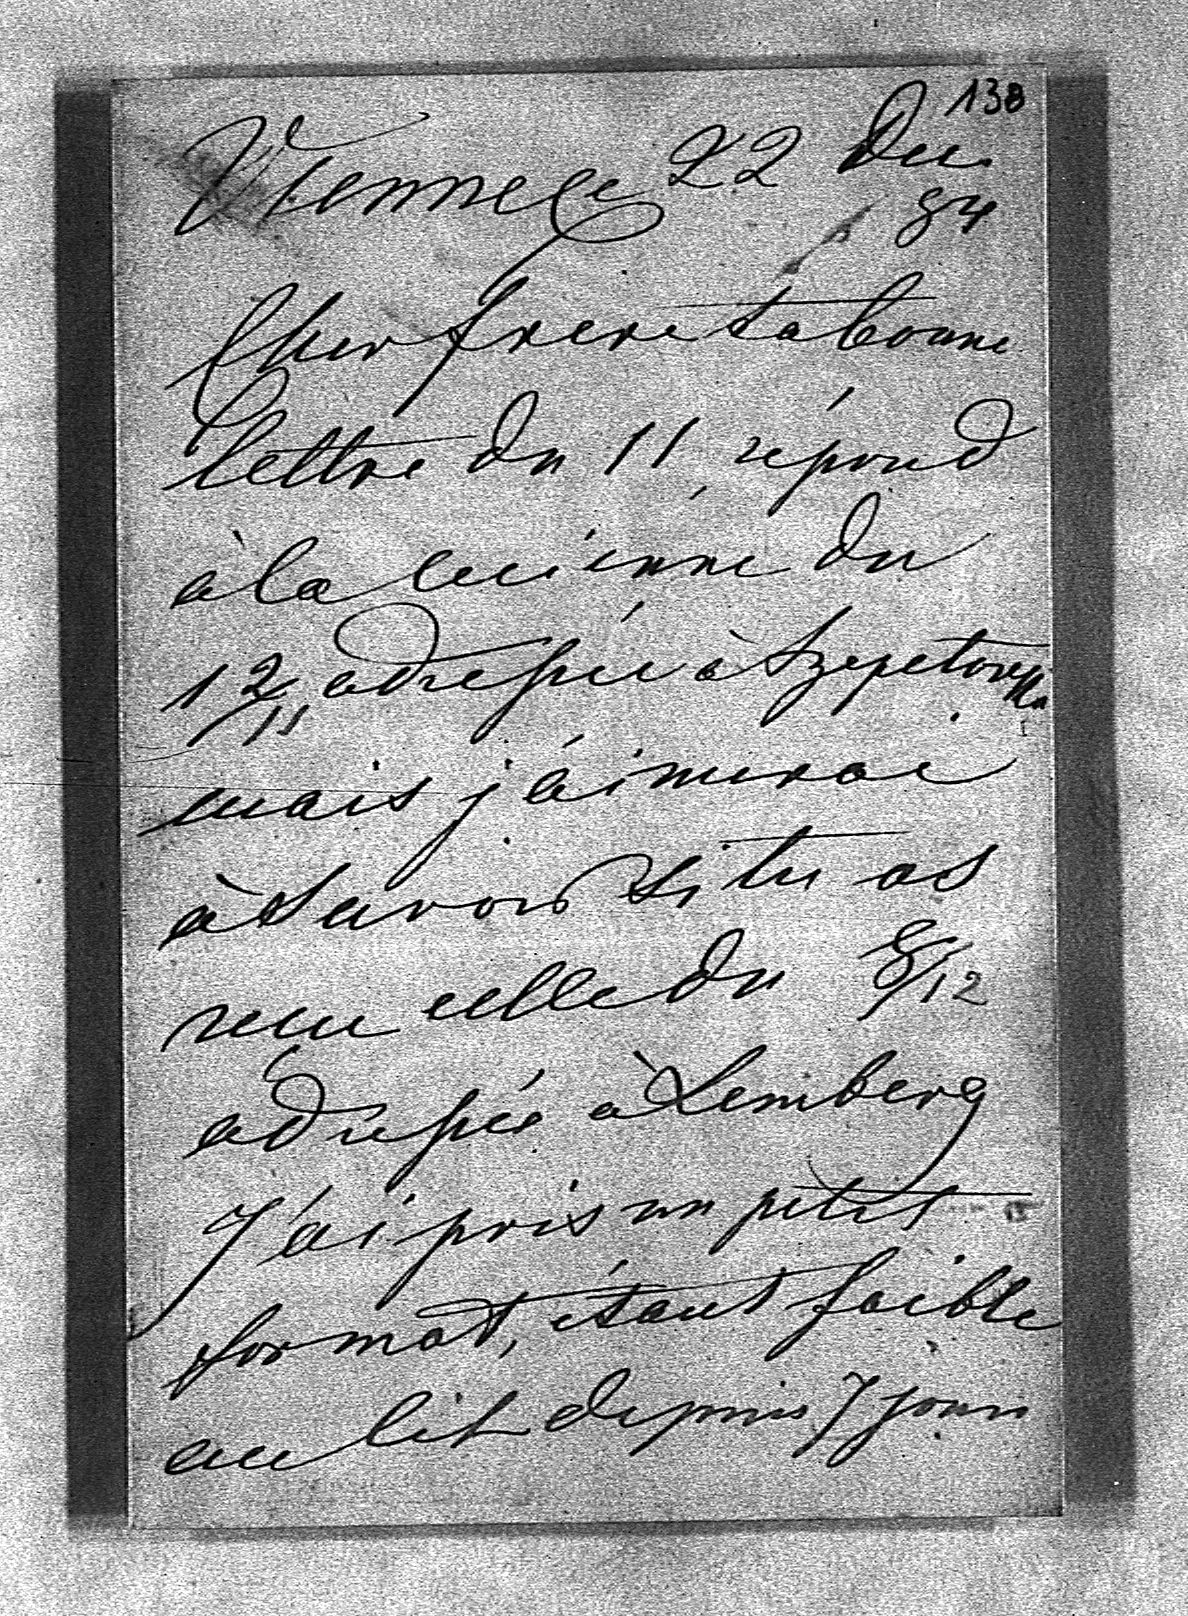 138
Vienne le 22 Dec
84
Cher frere ta bonne
lettre du 11 répond
à la mienne du
12/11 adressée à Szepetowka
mais j'aimerai
à savoir si tu as
recu celle du 8/12
adressée à Lemberg
J'ai pris un petit
format, étant faible
au lit depuis 7 jours